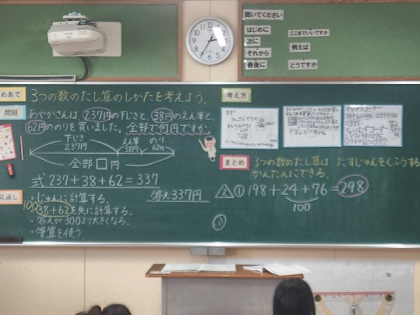 聞いてください
はじめに
次に
それから
最後に
ここまでいいですか
例えば
どうですか
めあて
3つの数のたし算のしかたを考えよう。
問題
あやかさんは、237円の下じきと、38円のえん筆と、
62円ののりを買いました。全部で何円ですか。
下じき
237円
38円
62円
全部□円
式 237+38+62=337
答え337円
見通し
・じゅんに計算する。
100
38+62を先に計算する。
・答えが300より大きくなる。
・筆算を使う
考え方
まとめ
3つの数のたし算は、たすじゅんをくふうすると
かんたんにできる。
① 198+24+76=298
100